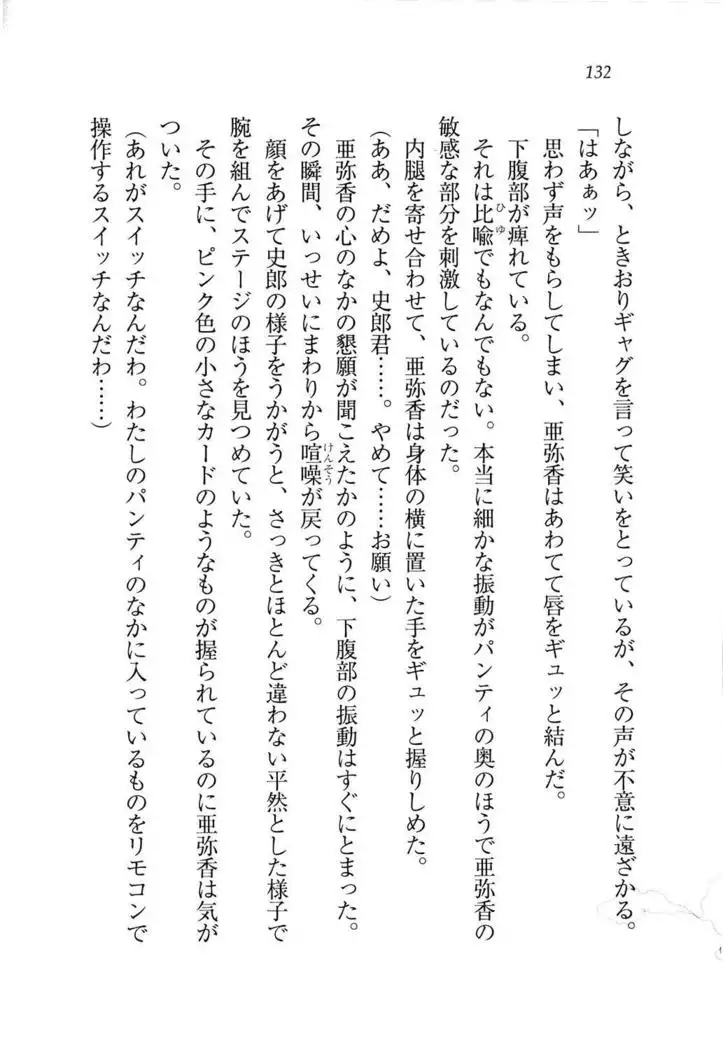 132
しながら、ときおりギャグを言って笑いをとっているが、その声が不意に遠ざかる。
「はあぁッ」
思わず声をもらしてしまい、亜弥香はあわてて唇をギュッと結んだ。
下腹部が痺れている。
それは比喩でもなんでもない。本当に細かな振動がパンティの奥のほうで亜弥香の
敏感な部分を刺激しているのだった。
内腿を寄せ合わせて、亜弥香は身体の横に置いた手をギュッと握りしめた。
(ああ、だめよ、史郎君……。やめて……お願い)
亜弥香の心のなかの懇願が聞こえたかのように、下腹部の振動はすぐにとまった。
その瞬間、いっせいにまわりから喧噪が戻ってくる。
顔をあげて史郎の様子をうかがうと、さっきとほとんど違わない平然とした様子で
腕を組んでステージのほうを見つめていた。
その手に、ピンク色の小さなカードのようなものが握られているのに亜弥香は気が
ついた。
(あれがスイッチなんだわ。わたしのパンティのなかに入っているものをリモコンで
操作するスイッチなんだわ……)